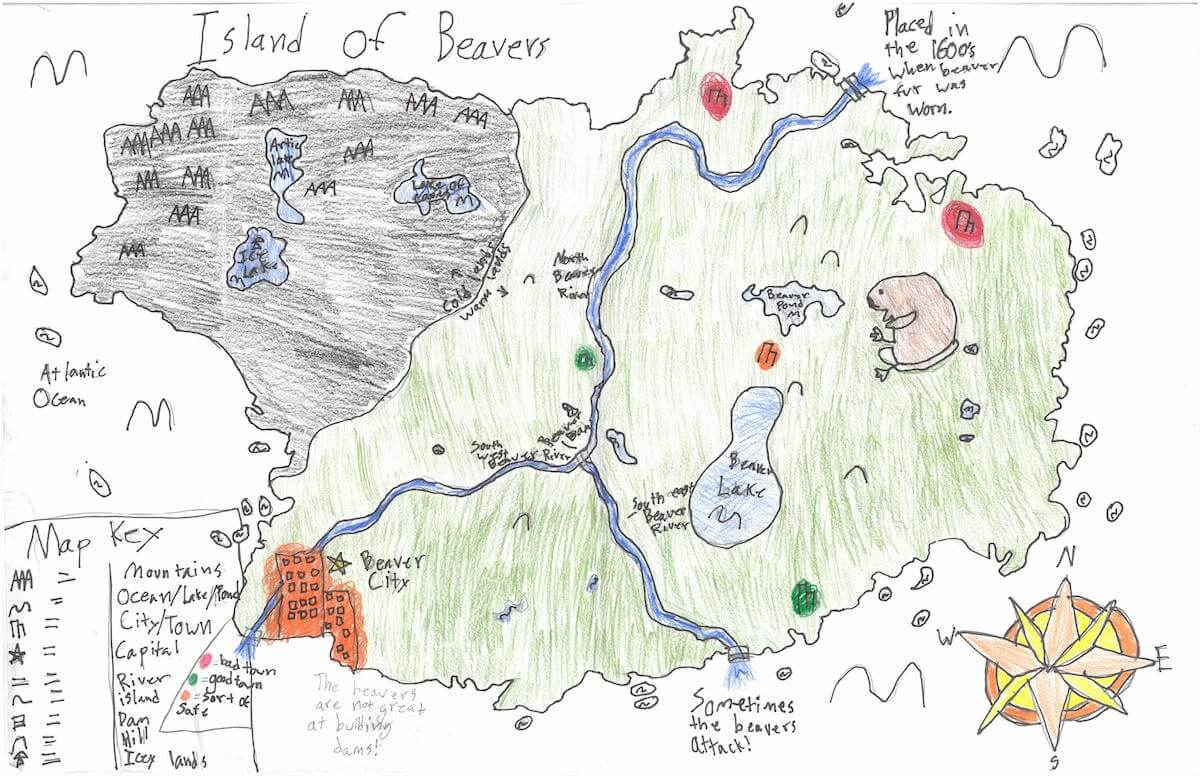 Island of Beavers
Placed in
the 1600s
when beaver
fur was
worn.
Artic
Lake
Lake of
Ice
Lake
Cold lands
warm lands
North
Beaver
River
Beaver
Pond
Atlantic
Ocean
Beaver
Dam
South
west
Beaver River
Beaver
Lake
South east
Beaver
River
Beaver
City
Map Key
Mountains
Ocean/Lake/Pond
City/Town
Capital
River
island
Dam
Hill
Icey lands
= bad town
= good town
= Sort of
Safe
The beavers
are not great
at building
dams!
Sometimes
the beavers
attack!
N
W
E
S